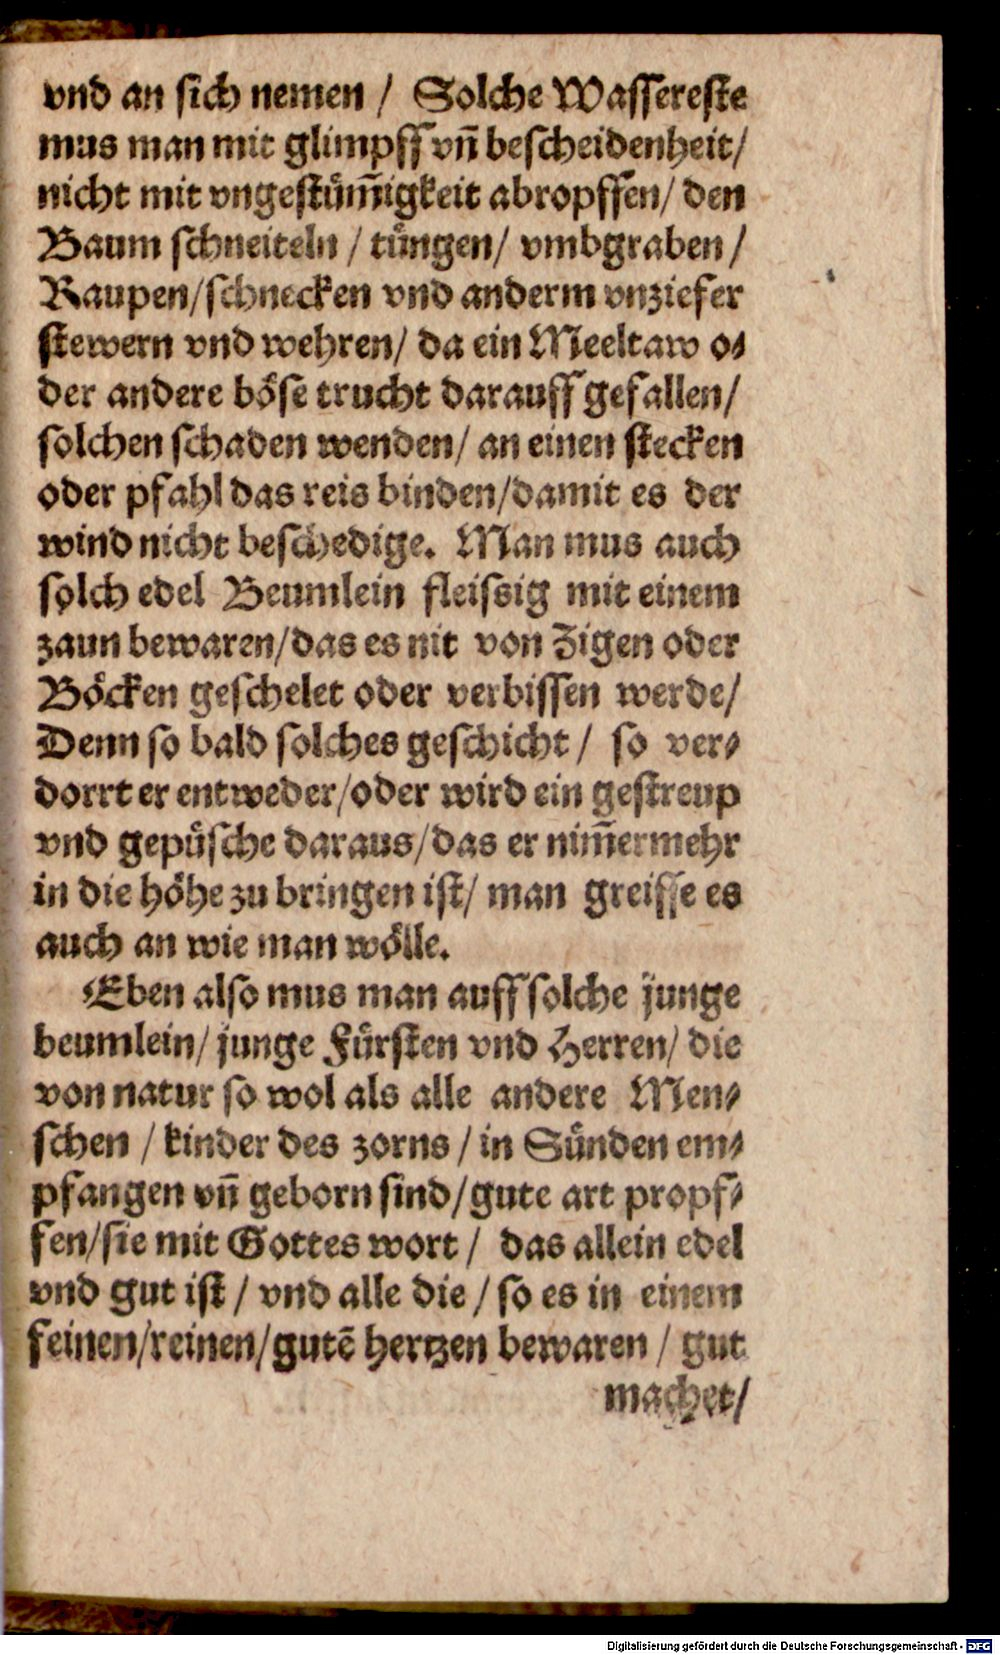 vnd an sich nemen / Solche Wassereste
mus man mit glimpff vn̄ bescheidenheit/
nicht mit vngestuͤm̄igkeit abropffen/ den
Baum schneiteln / tuͤngen/ vmbgraben /
Raupen/schnecken vnd anderm vnziefer
stewern vnd wehren/ da ein Meeltaw o⸗
der andere boͤse trucht darauff gefallen/
solchen schaden wenden/ an einen stecken
oder pfahl das reis binden/damit es der
wind nicht beschedige. Man mus auch
solch edel Beumlein fleissig mit einem
zaun bewaren/das es nit von Zigen oder
Boͤcken geschelet oder verbissen werde/
Denn so bald solches geschicht / so ver⸗
dorrt er entweder/oder wird ein gestreup
vnd gepuͤsche daraus/das er nim̄ermehr
in die hoͤhe zu bringen ist/ man greiffe es
auch an wie man woͤlle.
Eben also mus man auff solche junge
beumlein/ junge Fuͤrsten vnd Herren/ die
von natur so wol als alle andere Men⸗
schen / kinder des zorns / in Suͤnden em⸗
pfangen vn̄ geborn sind/gute art propf⸗
fen/sie mit Gottes wort / das allein edel
vnd gut ist / vnd alle die / so es in einem
feinen/reinen/gutē hertzen bewaren / gut
machet/
Digitalisierung gefördert durch die Deutsche Forschungsgemeinschaft - DFG